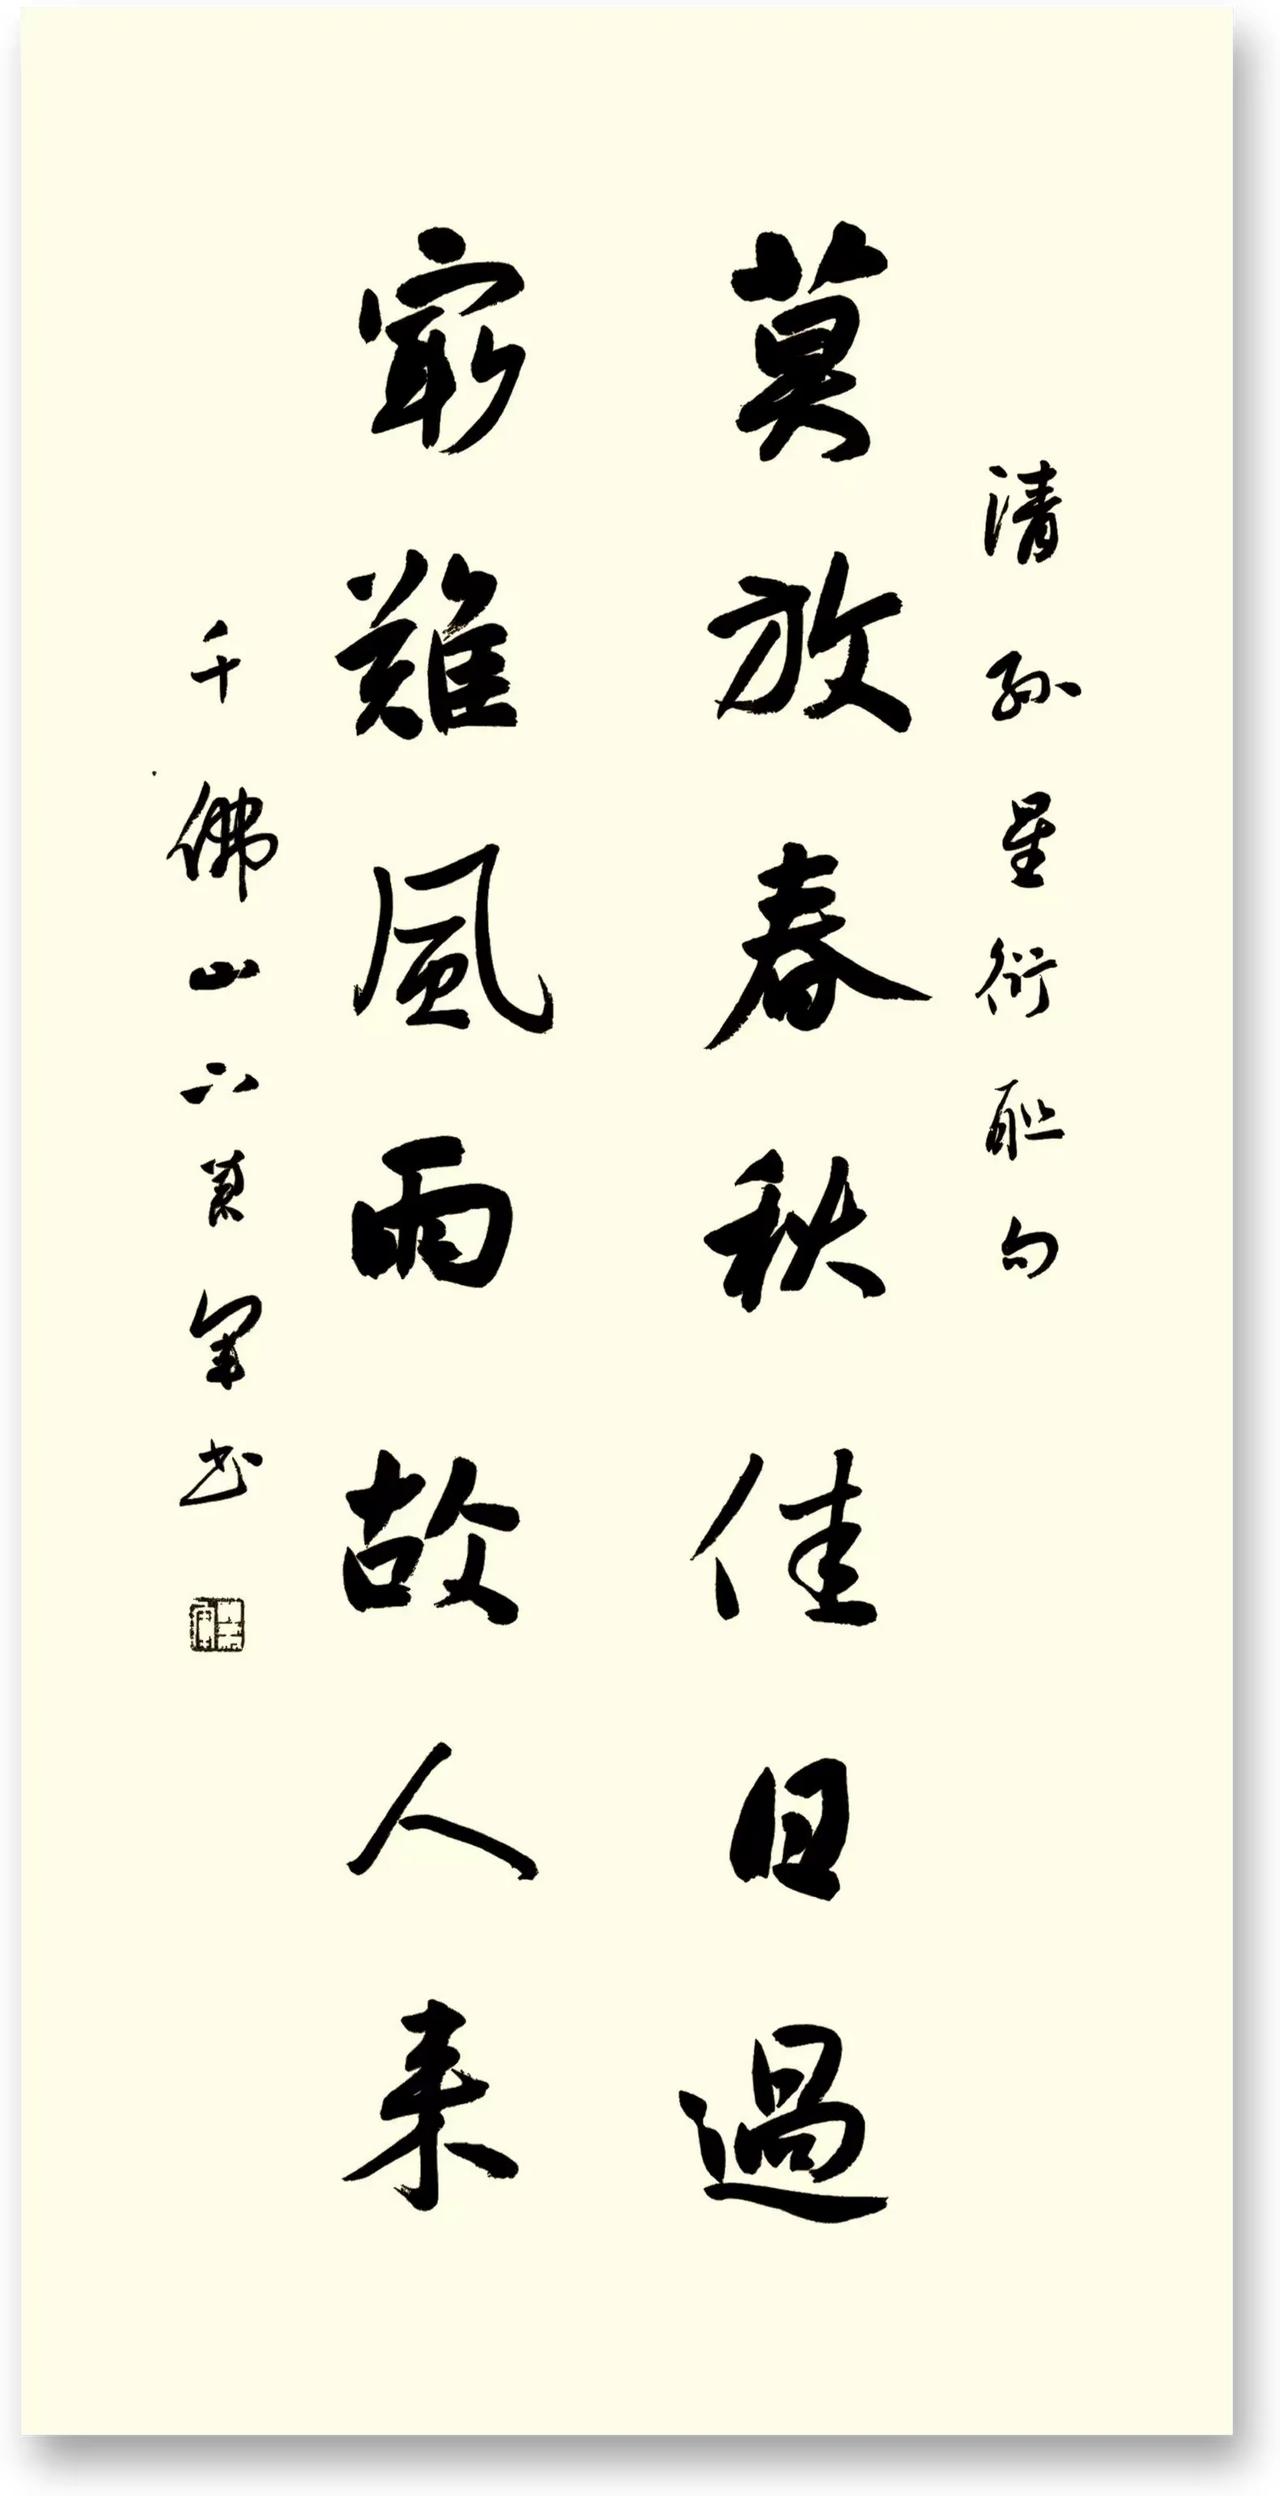 清孙星衍联句
莫放春秋佳日過
㝡難風雨故人来
千佛山军书